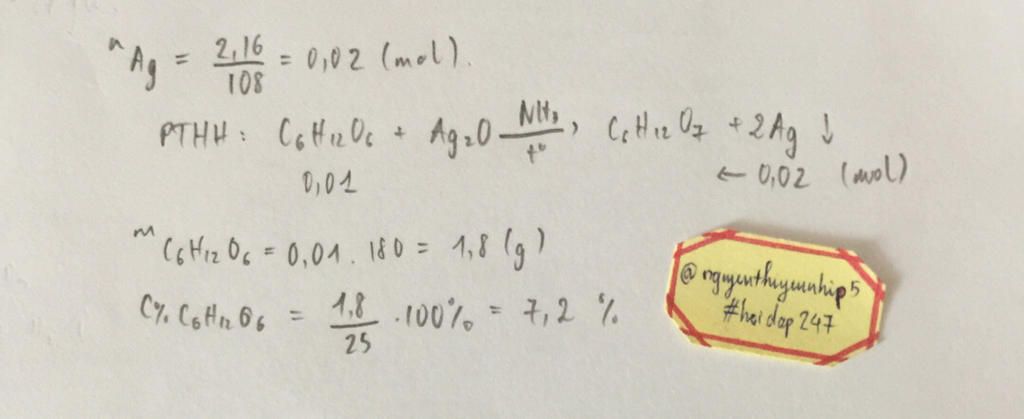 nAg = 2,16/108 = 0,02 (mol).
PTHH: C6H12O6 + Ag2O NH3/t° → C6H12O7 + 2Ag ↓
0,01 ← 0,02 (mol)
mC6H12O6 = 0,01 . 180 = 1,8 (g)
C% C6H12O6 = 1,8/25 .100% = 7,2 %
@nguyenthuyuunhip5
#hoidap247